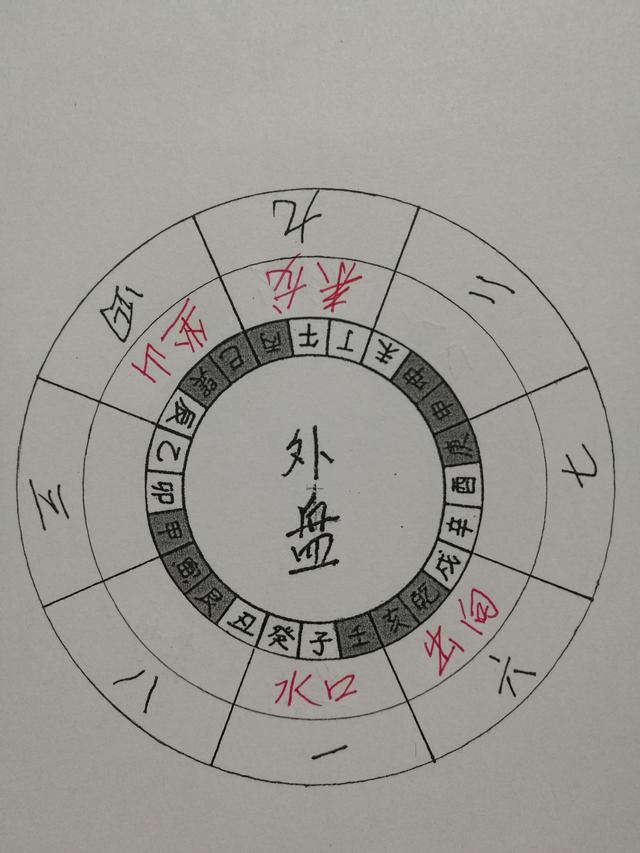 九
二
七
六
一
八
三
四
来龙
出向
水口
坐山
午丁未坤申庚酉辛戌乾亥壬子癸丑艮寅甲卯乙辰巽巳丙
外
盘